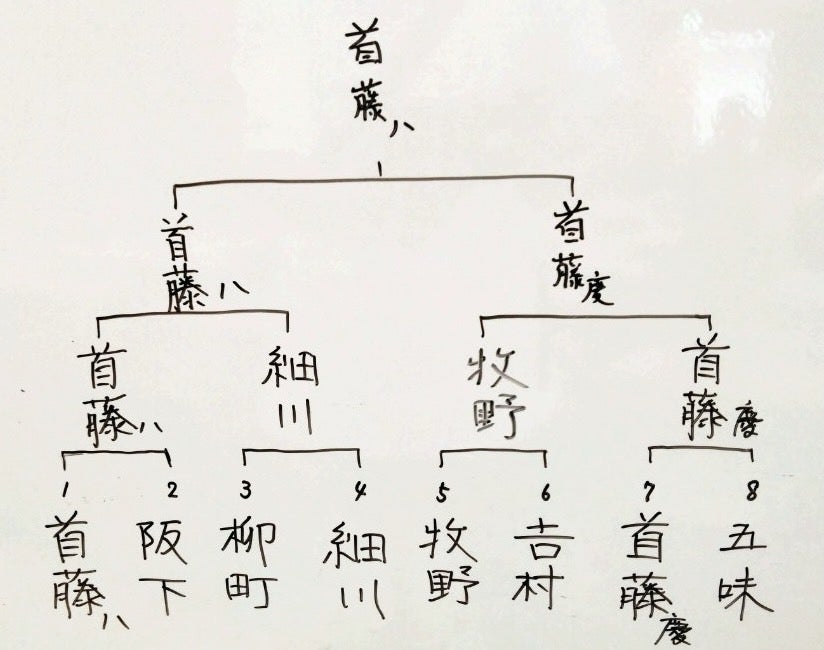 首藤八
首藤八
首藤慶
首藤八
細川
牧野
首藤慶
1
2
3
4
5
6
7
8
首藤八
阪下
柳町
細川
牧野
吉村
首藤慶
五味